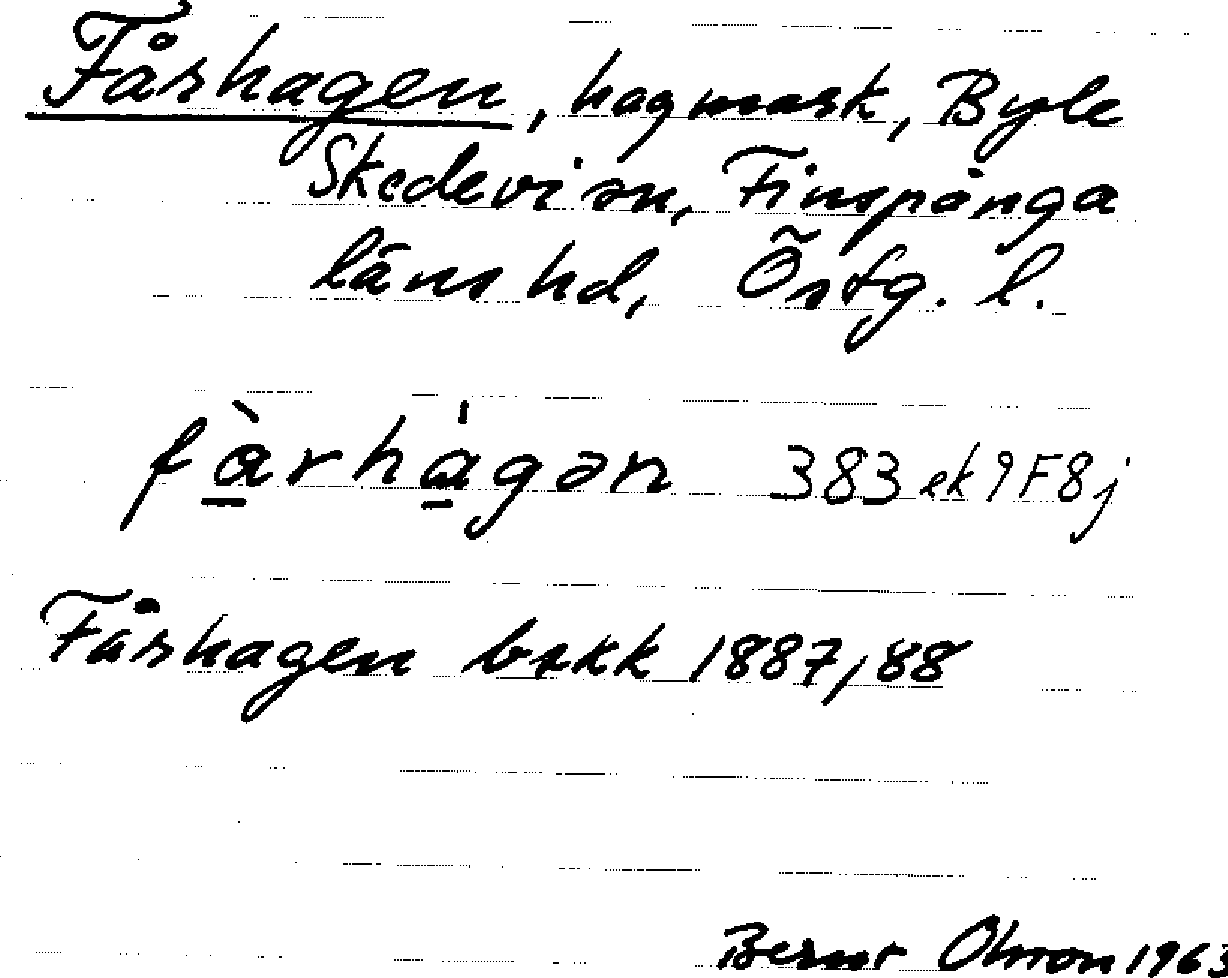 Fårhagen, hagmark, Byle
Skedevi sn, Finspånga
läns hd, Östg. l.
fàrhágən 383 ek 9F8j
Fårhagen bxkk 1887/88
Bernt Olsson 1963